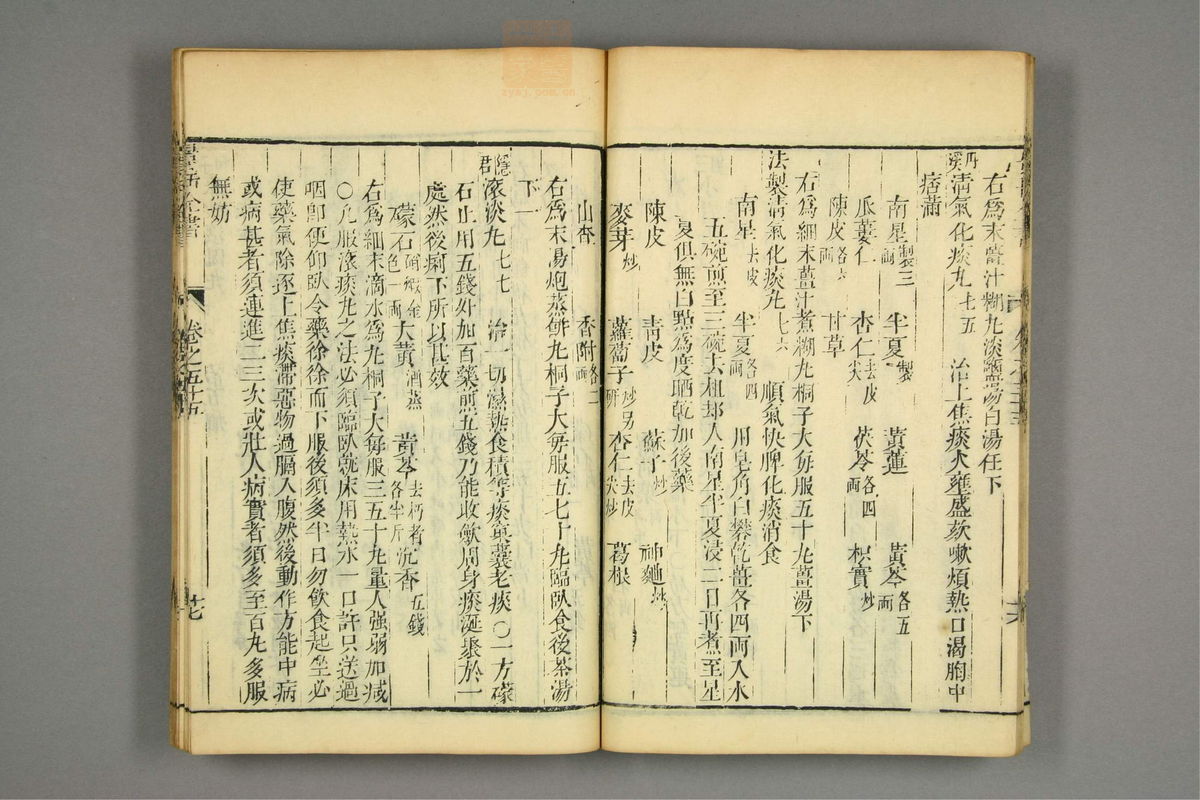 右為末薑汁糊丸淡薑湯白湯任下
丹溪清氣化痰丸七五　治上焦痰火壅盛欬嗽煩熱口渴胸中
痞滿
南星製三兩　半夏製　黃蓮　黃芩各五兩
瓜蔞仁　杏仁去皮尖　茯苓各四兩　枳實炒
陳皮各六兩　甘草
右為細末薑汁煮糊丸桐子大每服五十丸薑湯下
法製清氣化痰丸七六　順氣快脾化痰消食
南星去皮　半夏各四兩　用皂角白礬乾薑各四兩入水
五碗煎至三碗去柤却入南星半夏浸二日再煮至星
夏俱無白點為度晒乾加後藥
陳皮　青皮　蘇子炒　神麯炒
麥芽炒　蘿蔔子炒另研　杏仁去皮尖炒　葛根
山查　香附各二兩
右為末湯炮蒸餅丸桐子大每服五七十丸臨臥食後茶湯
下一
隱君滾痰丸七七　治一切濕熱食積等痰窠囊老痰○一方礞
石止用五錢外加百藥煎五錢乃能收歛周身痰涎聚於一
處然後痢下所以甚效
礞石硝煅金色一兩　大黃酒蒸　黃芩去朽者各半斤　沉香五錢
右為細末滴水為丸桐子大每服三五十丸量人強弱加减
○凡服滾痰丸之法必須臨臥就床用熱水一口許只送過
咽即便仰臥令藥徐徐而下服後須多半日勿飲食起坐必
使藥氣除逐上焦痰滯惡物過膈入腹然後動作方能中病
或病甚者須連進二三次或壯人病實者須多至百丸多服
無妨
卷之五十五